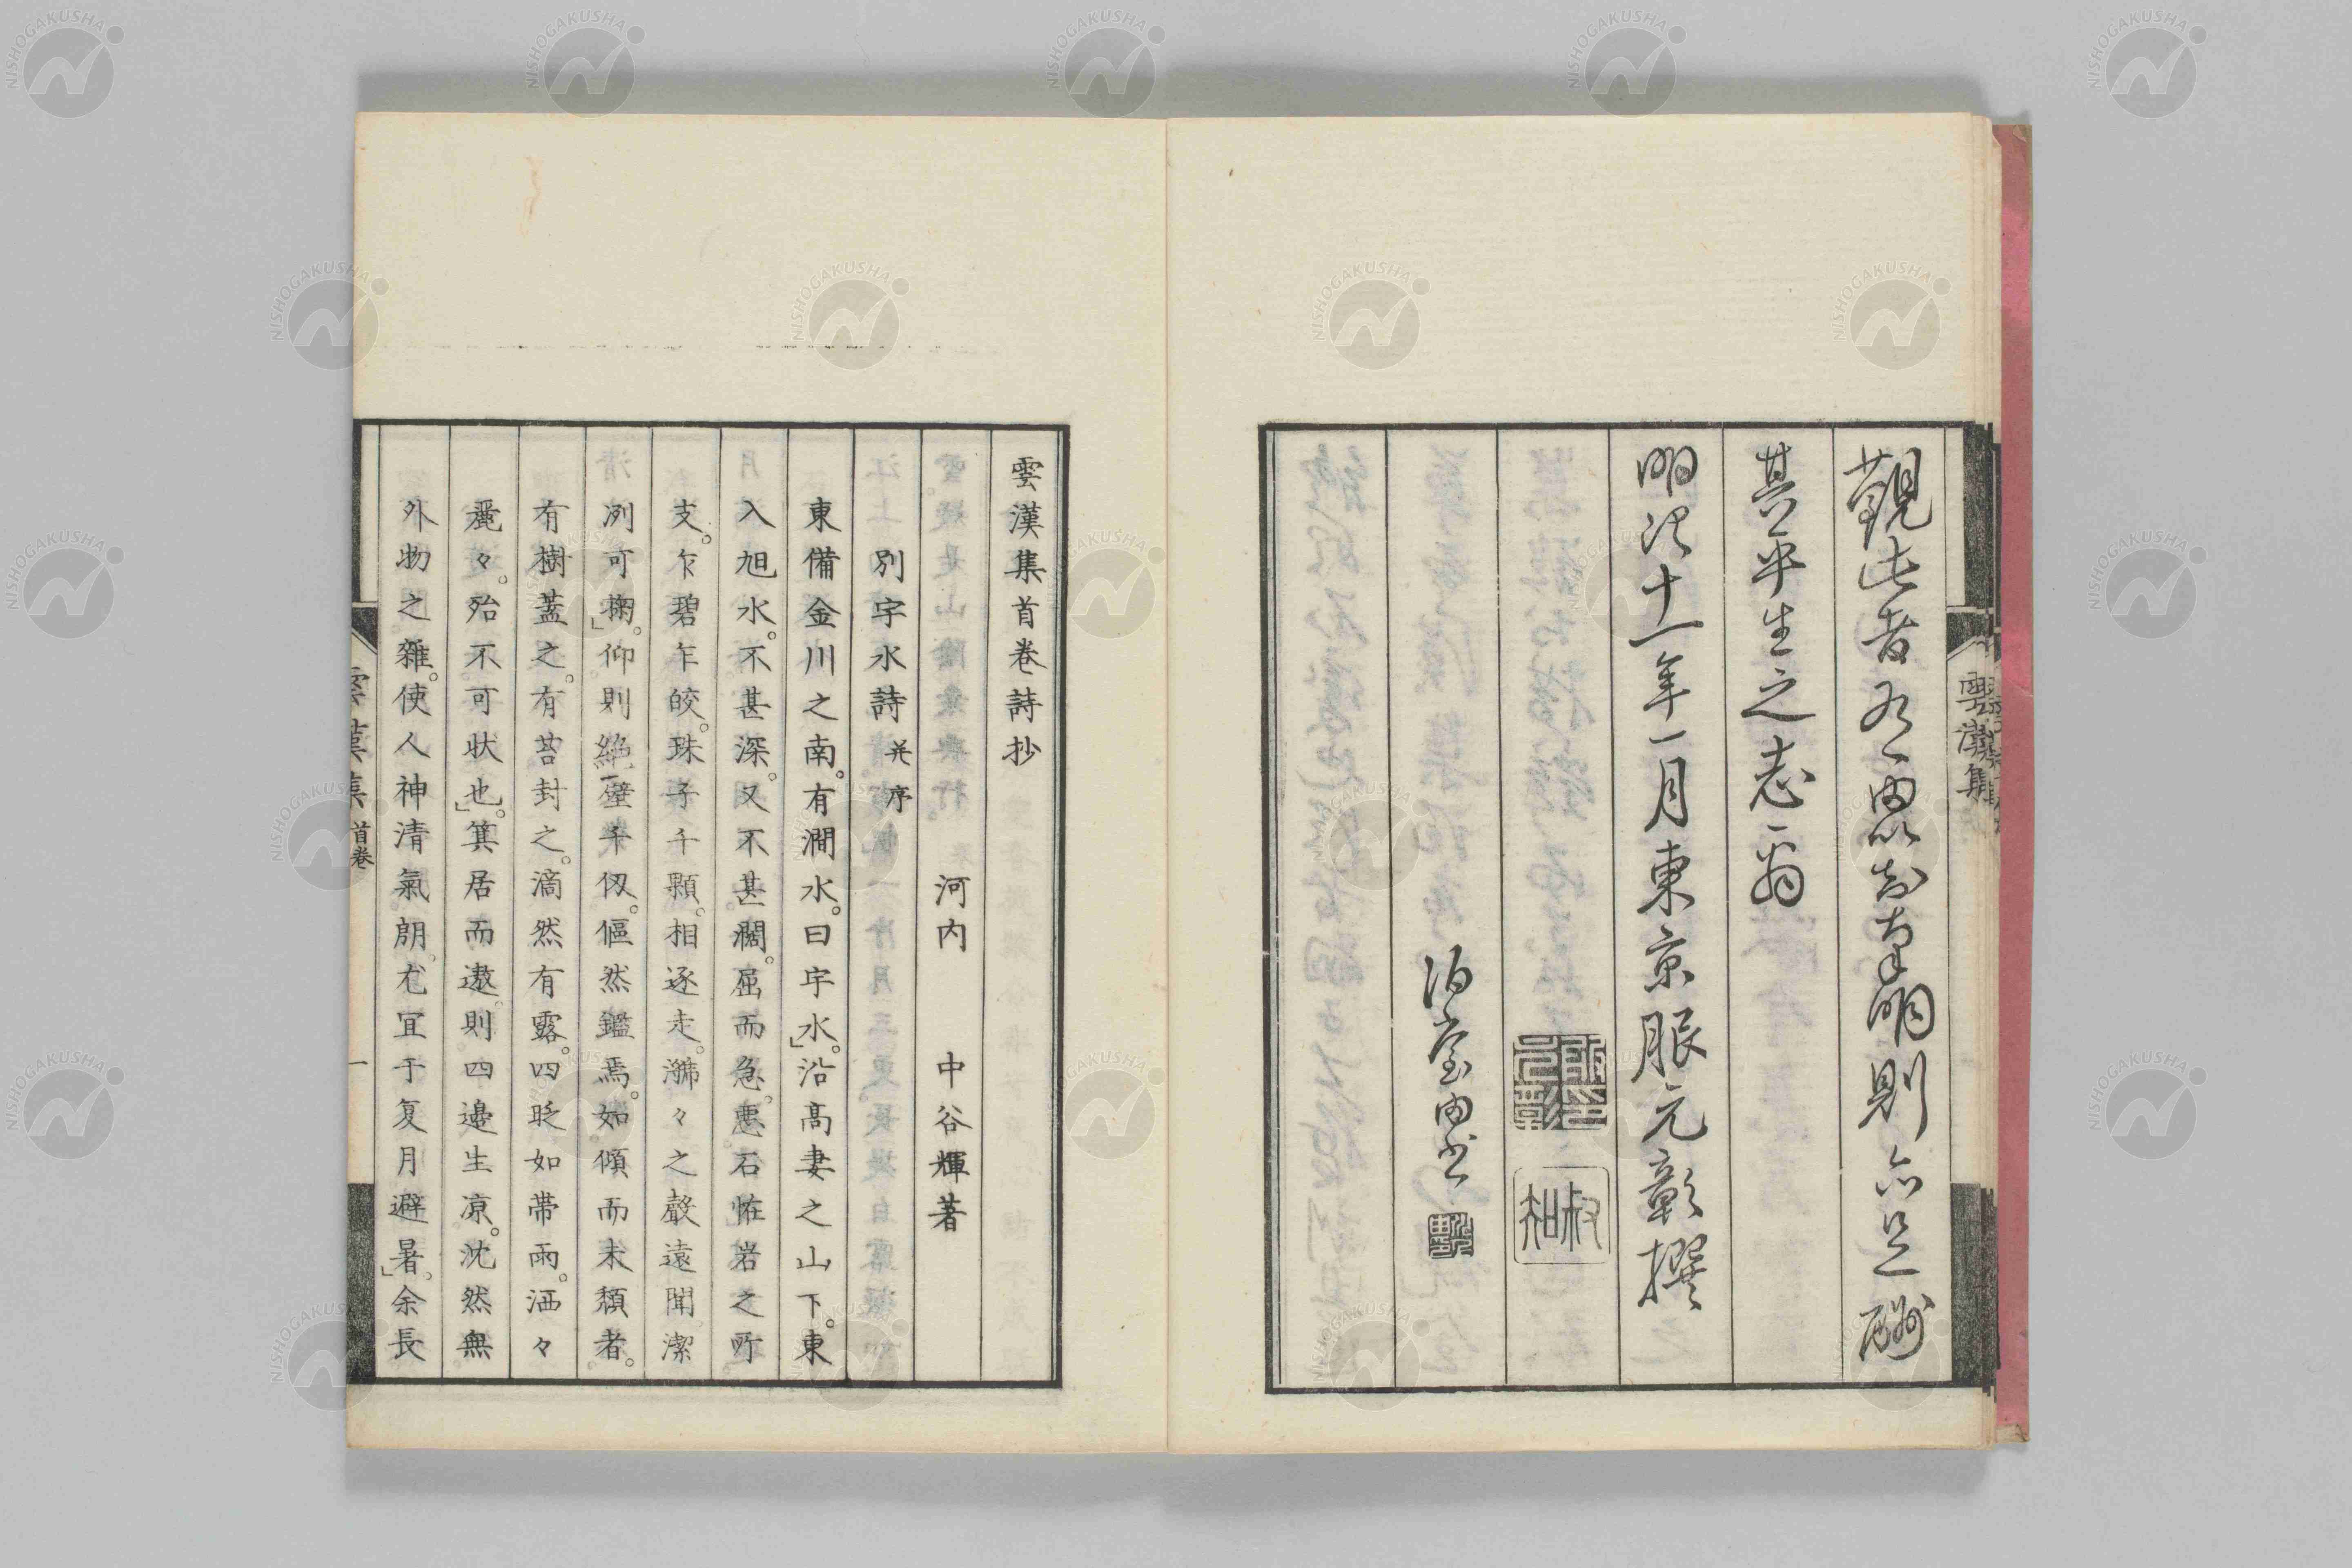 觀此者有思知其明則亦足酬
其平生之志爾
明治十一年一月東京服元彰撰
叔和
雲漢集
雲漢集首卷詩抄
河内　中谷輝著
別宇水詩 并序
東備金川之南。有澗水。曰宇水」。沿高妻之山下。東
入旭水。不甚深。又不甚濶。屈而急。悪石恠岩之所
支。乍碧乍皎。珠子千顆。相逐走。㶁々之聲遠聞。潔
冽可掬」。仰則絶壁千仭。傴然鑑焉。如傾而未頽者。
有樹蓋之。有苔封之。滴然有露。四眨如帶雨。洒々
麗々。殆不可状也」。箕居而遨。則四邊生凉。沈然無
外物之雜。使人神清氣朗。尤宜于夏月避暑」。余長
雲漢集 首卷 一
NISHOGAKUSHA